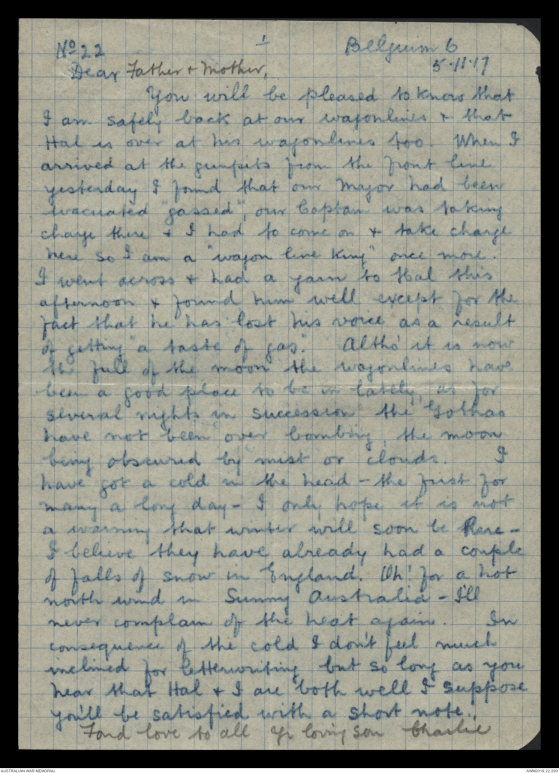 No 22 1 Belguim 6
5.11.17
Dear Father & Mother,
You will be pleased to know that
I am safely back at our wagonlines & that
Hal is over at his wagonlines too. When I
arrived at the gunpits from the front line
yesterday I found that our Major had been
evacuated "gassed", our Captain was taking
charge there & I had to come on & take charge
here so I am a "wagon line King" once more.
I went across & had a yarn to Hal this
afternoon & found him well except for the
fact that he has lost his voice as a result
of getting "a taste of gas." Altho' it is now
the full of the moon the wagonlines have
been a good place to be in lately, as for
several nights in succession the Gothas
have not been over bombing, the moon
being obscured by mist or clouds. I
have got a cold in the head - the first for
many a long day - I only hope it is not
a warning that winter will soon be here -
I believe they have already had a couple
of falls of snow in England. Oh! for a hot
north wind in Sunny Australia - I'll
never complain of the heat again. In
consequence of the cold I don't feel much
inclined for letterwriting but so long as you
hear that Hal & I are both well I suppose
you'll be satisfied with a short note.
Fond love to all Yr loving son Charlie
AUSTRALIAN WAR MEMORIAL